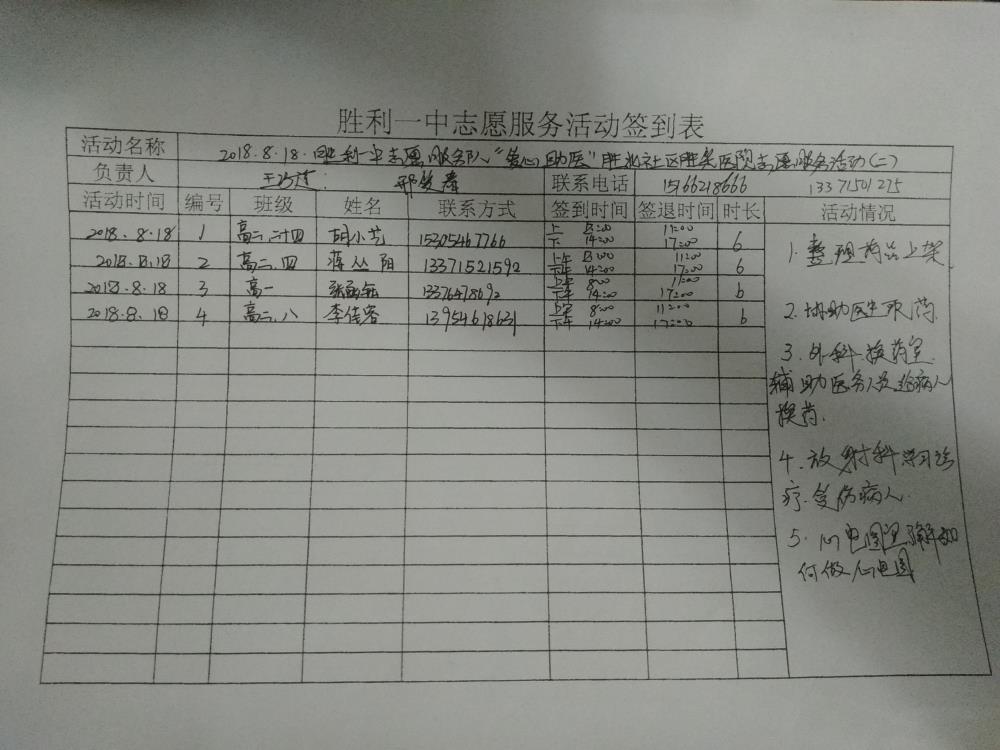 胜利一中志愿服务活动签到表
活动名称 2018.8.18.胜利一中志愿服务队"爱心助医"胜北社区胜采医院志愿服务活动(二)
负责人 联系电话 15166218666 13371501275
活动时间 编号 班级 姓名 联系方式 签到时间 签退时间 时长 活动情况
2018.8.18 1 高二.二十四 胡小艺 15305467766 上 8:00 11:00 6
下 14:00 17:00
2018.8.18 2 高二.四 蒋丛阳 13371521592 上午 8:00 11:00 6
下午 14:00 17:00
2018.8.18 3 高一 13376478692 上午 8:00 11:00 6
下午 14:00 17:00
2018.8.18 4 高二.八 李佳容 13954618631 上午 8:00 11:00 6
下午 14:00 17:00
1.整理药品上架
2.协助医生取药.
3.外科.换药室.
辅助医务人员给病人
换药.
4.放射科学习诊
疗.受伤病人.
5.心电图室了解如
何做心电图